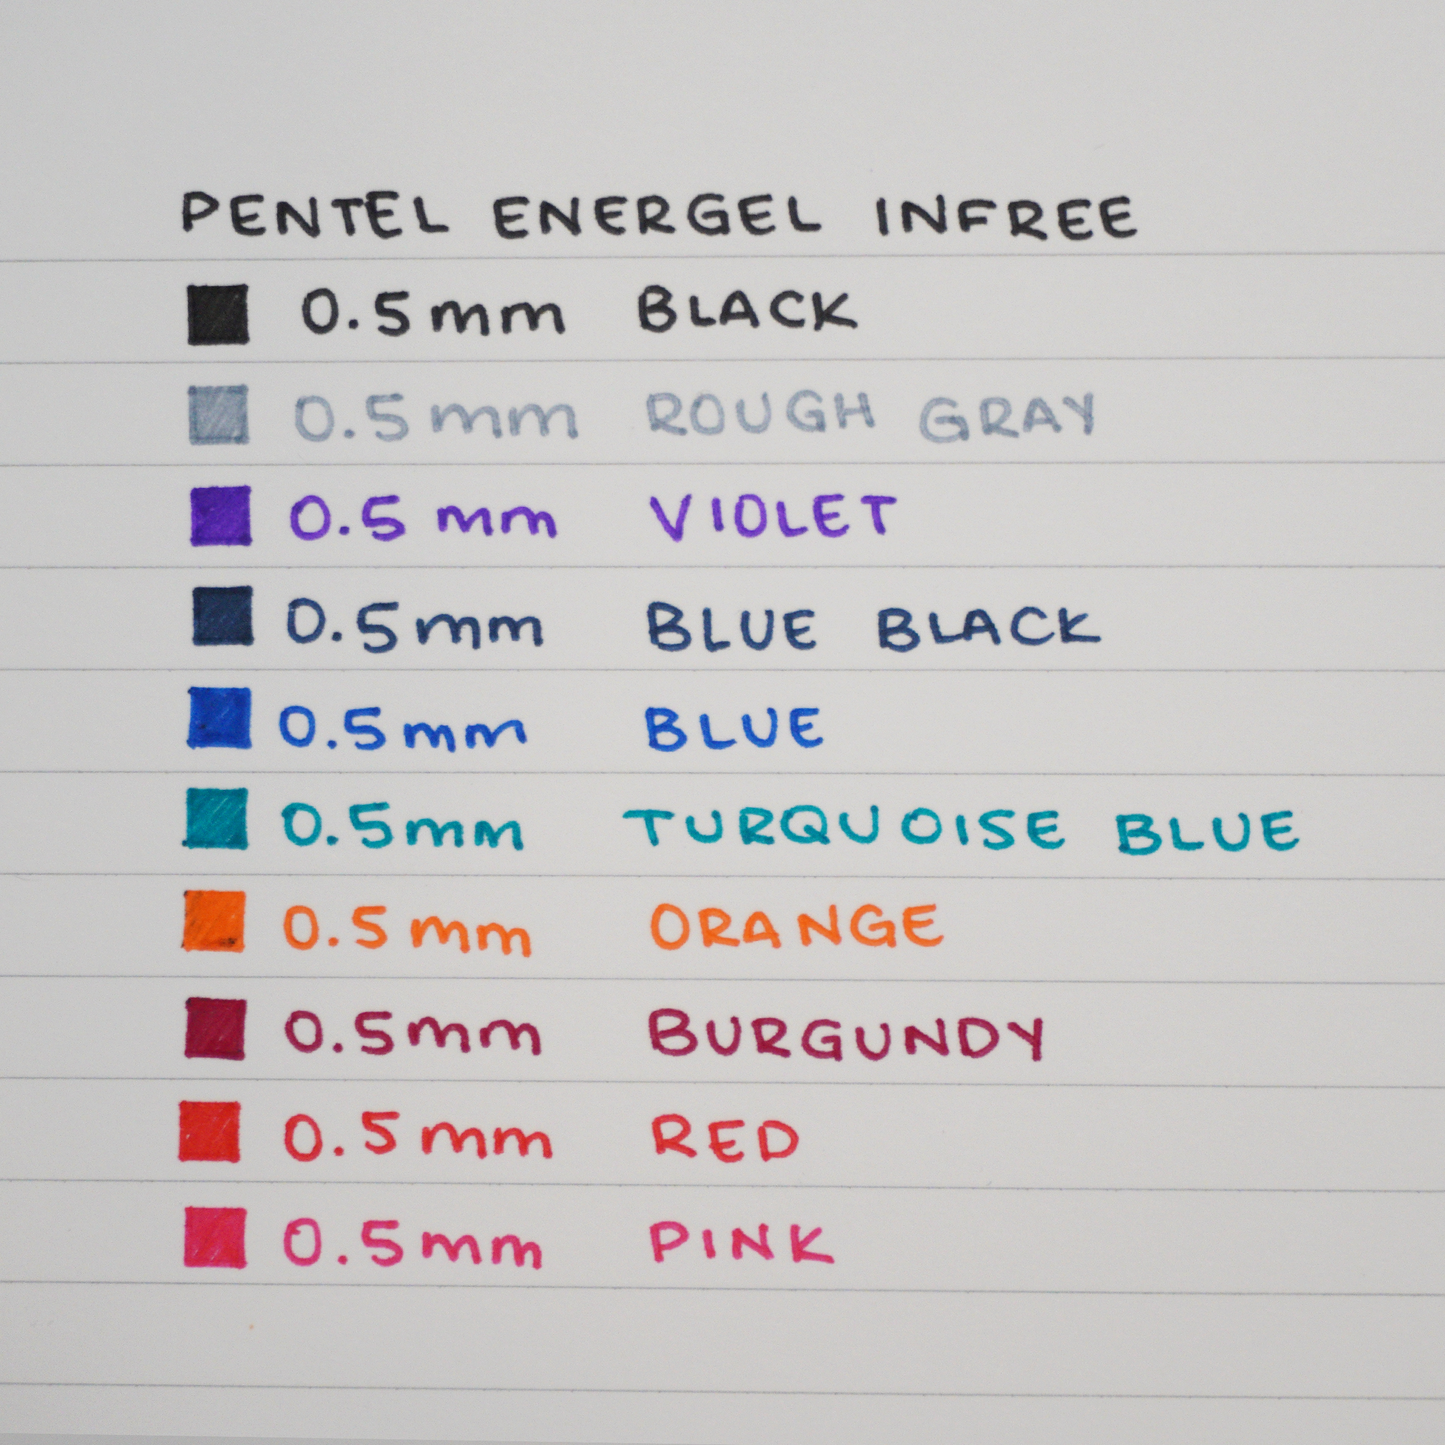 PENTEL ENERGEL INFREE
0.5mm BLACK
0.5mm ROUGH GRAY
0.5 mm VIOLET
0.5mm BLUE BLACK
0.5mm BLUE
0.5mm TURQUOISE BLUE
0.5mm ORANGE
0.5mm BURGUNDY
0.5mm RED
0.5mm PINK